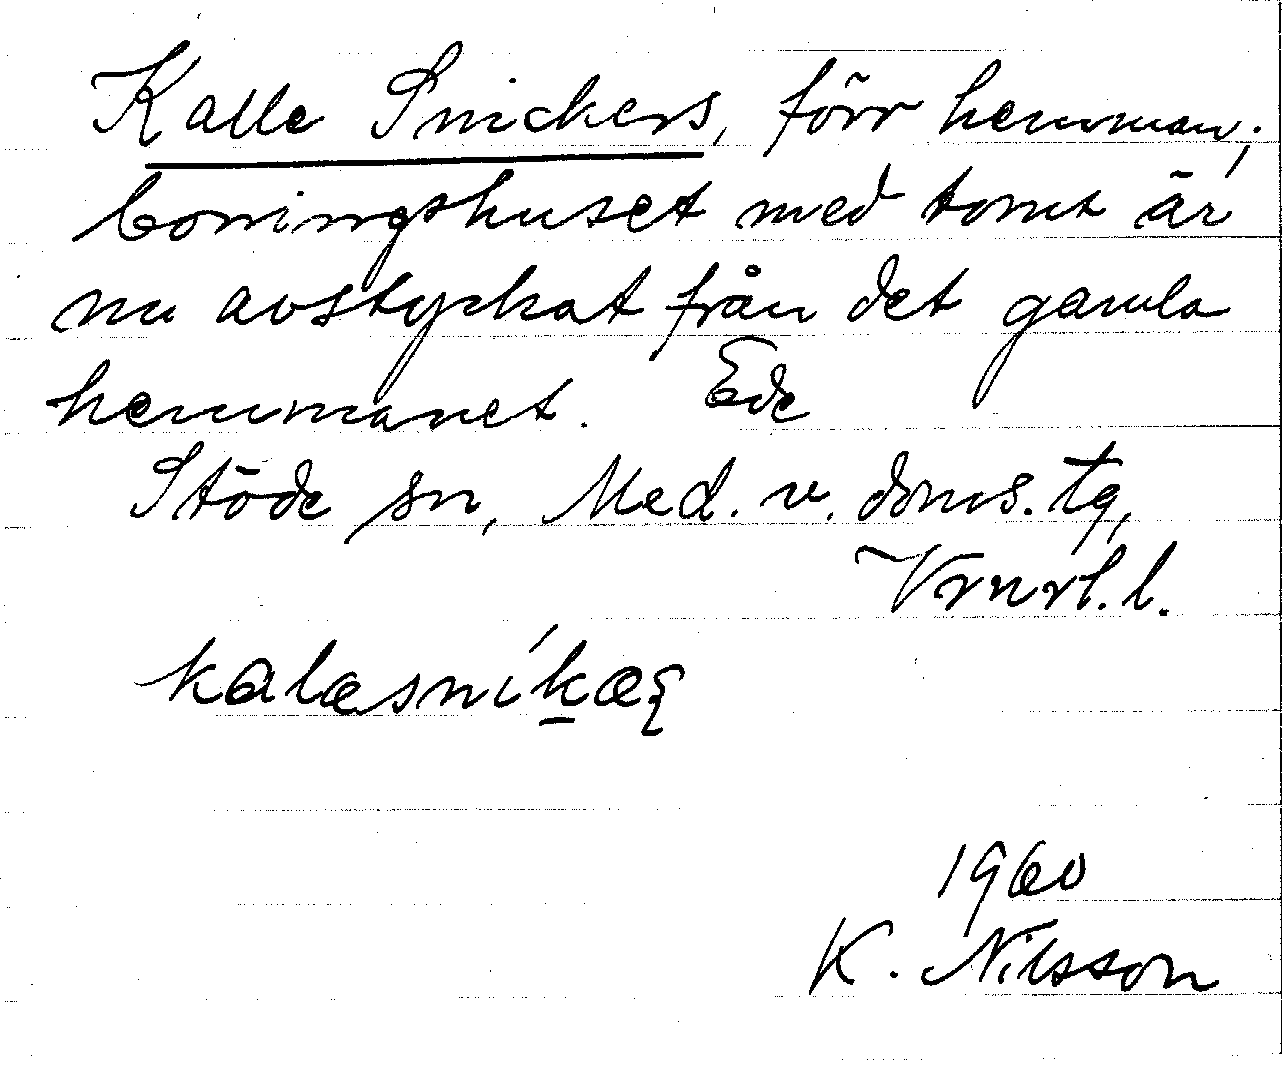 Kalle Snickers, förr hemman;
boningshuset med tomt är
nu avstyckat från det gamla
hemmanet. Ede
Stöde sn, Med. v. doms. tg,
Vrnrl. l.
1960
K. Nilsson